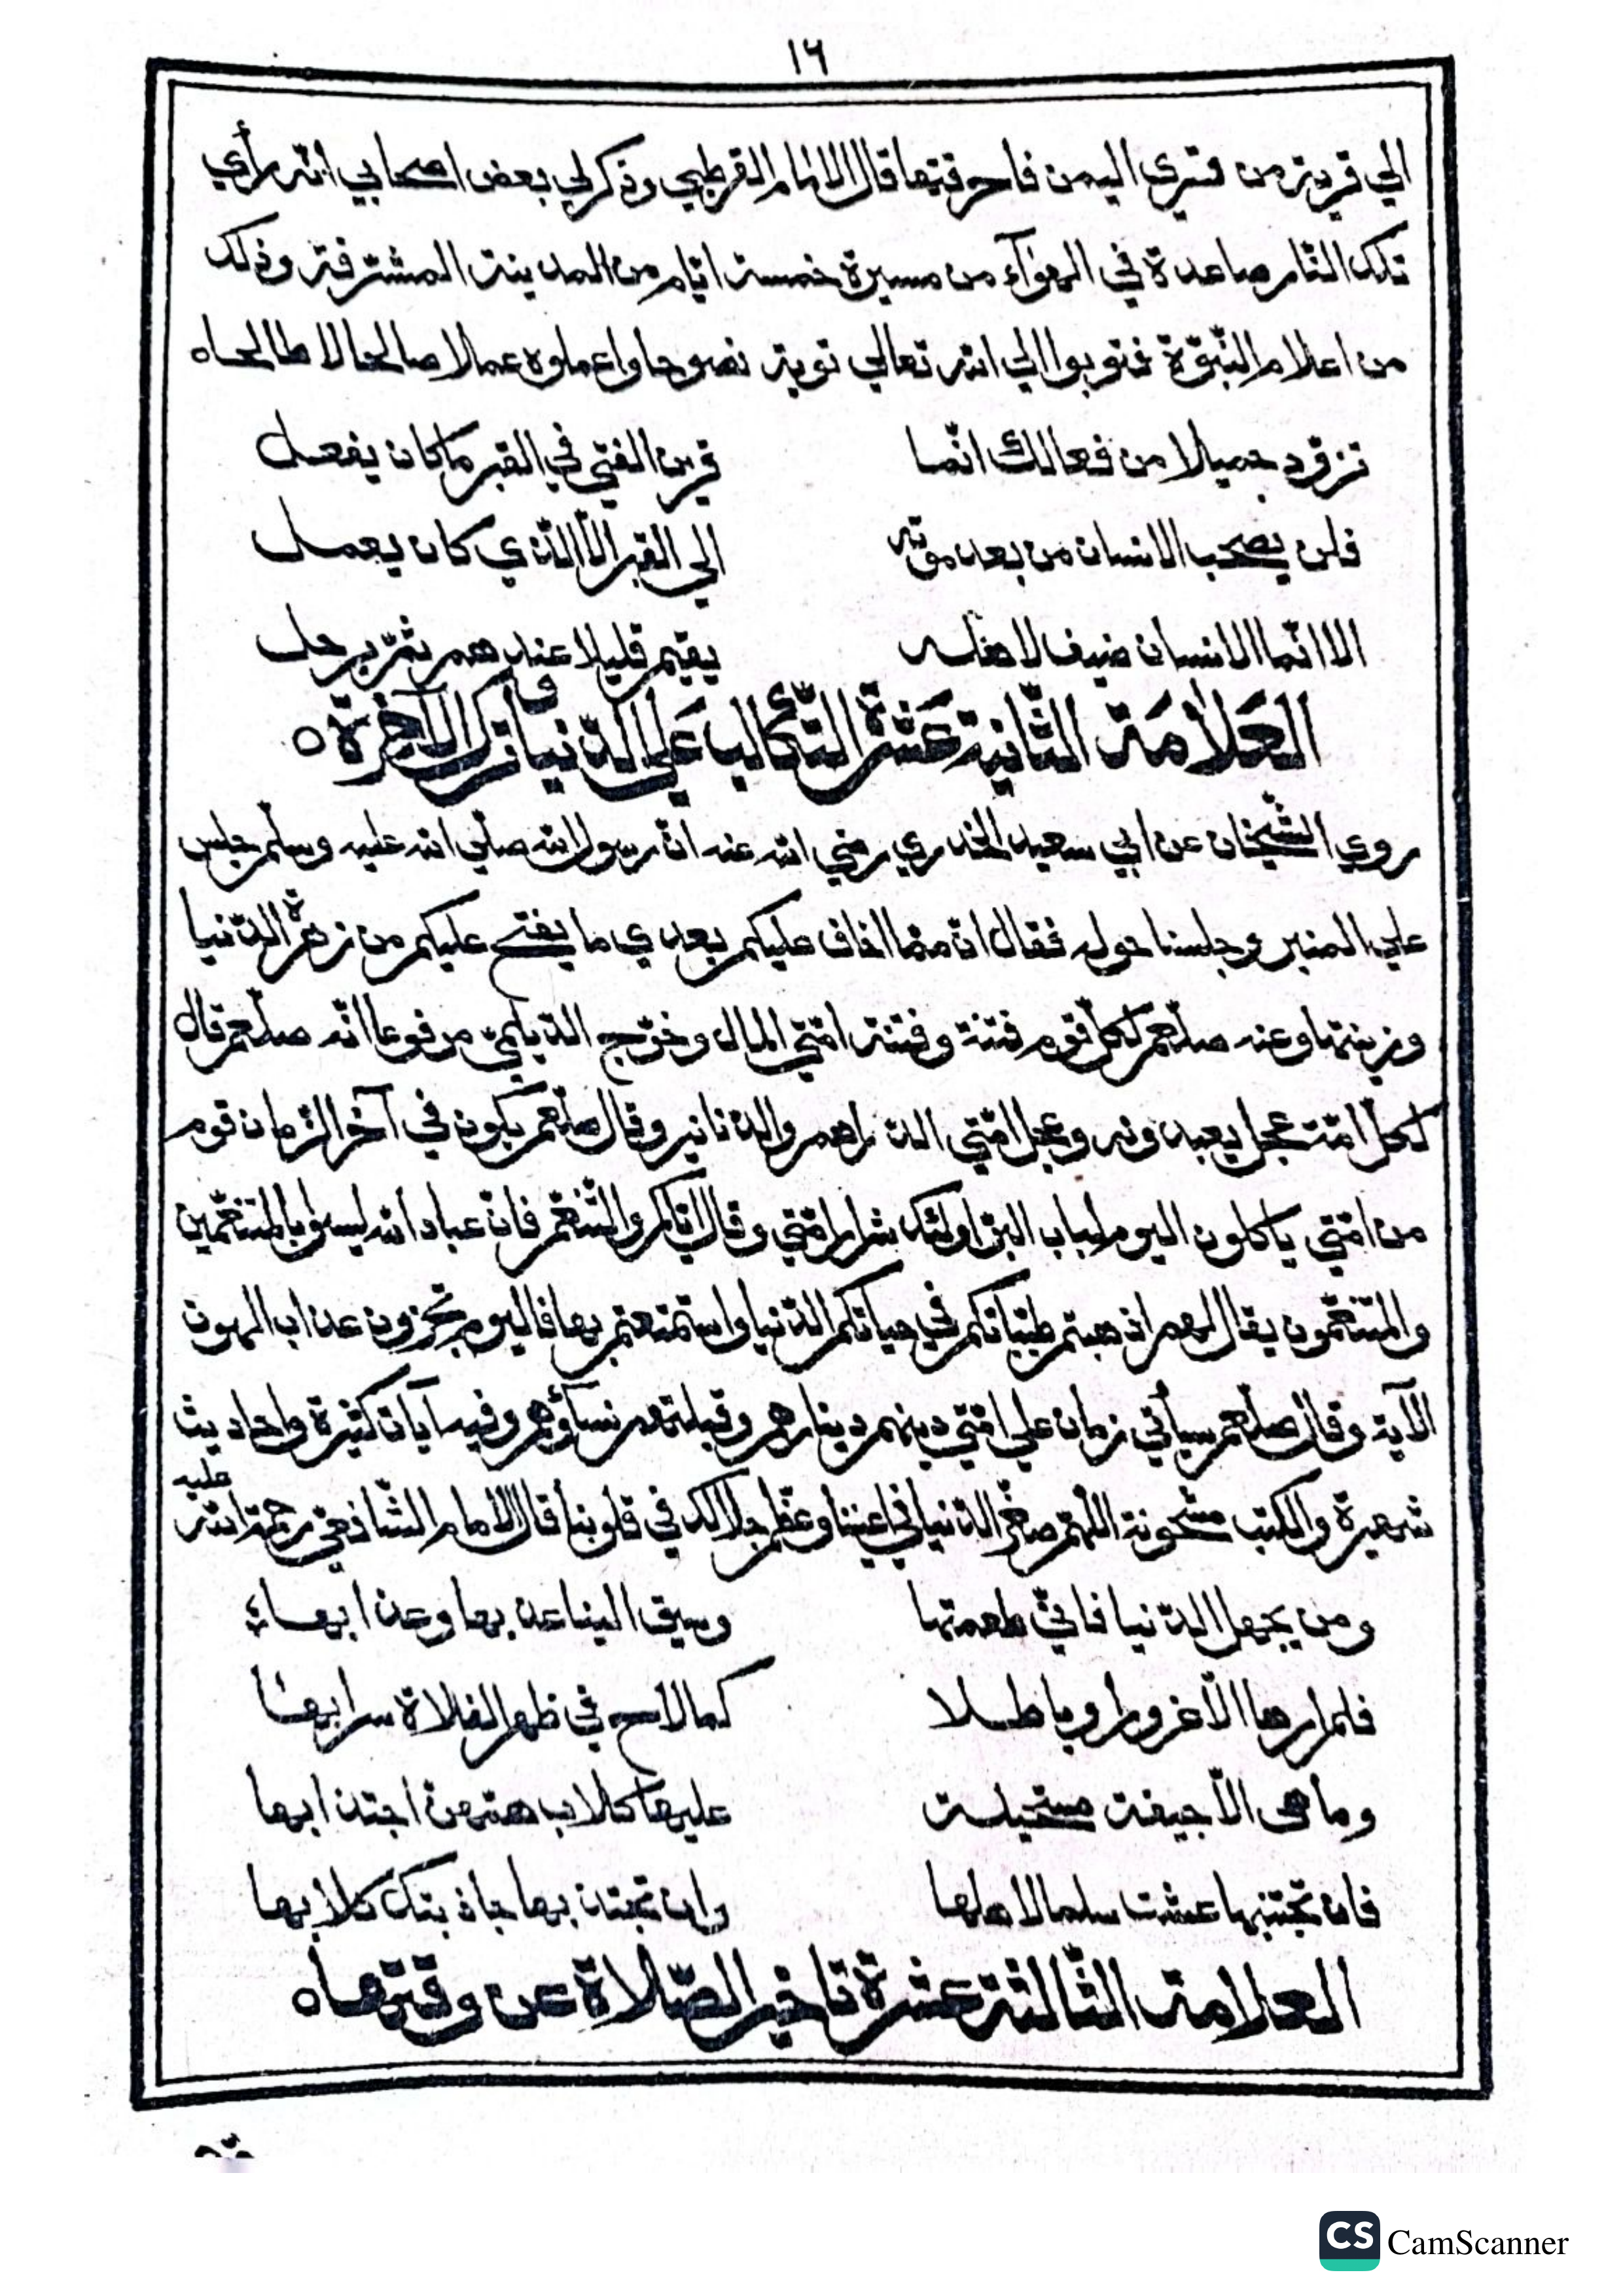 ١٦
الي قرية من قري اليمن فاحرقتها قال الامام القرطبي وذكر لي بعض اصحابي انّه رأي
تلك النّار صاعدة في الهوآء من مسيرة خمسة ايّام من المدينة المشرّفة وذلك
من اعلام النّبوّة فتوبوا الي الله تعالي توبة نصوحا واعملوه عملا صالحا لا طالحاه
تزوّد جميلا من فعالك انّما قرين الفتي في القبر ما كان يفعل
فلن يصحب الانسان من بعد موته الي القبر الّا الّذي كان يعمل
الا انّما الانسان ضيف لاهله يقيم قليلا عندهم ثمّ يرحل
العَلَامَة الثّانية عَشَرَة التّكالب عَلي الدّنيا وترك الآخرة ه
روي الشّيخان عن ابي سعيد الخدري رضي الله عنه انّ رسول الله صلّي الله عليه وسلّم جلس
علي المنبر وجلسنا حوله فقال انّ ممّا اخاف عليكم بعدي ما يفتح عليكم من زهرة الدّنيا
وزينتها وعنه صلّعم لكلّ قوم فتنة وفتنة امّتي المال وخرّج الدّيلميّ مرفوعا انّه صلّعم قال
لكلّ امّة عجل يعبدونه وعجل امّتي الدراهم والدّنانير وقال صلّعم يكون في آخر الزّمان قوم
من امّتي ياكلون اليوم لباب البرّ اولئك شرار امّتي وقال ايّاكم والتّنعّم فانّ عباد الله ليسوا بالمتنعّمين
والمتنعّمون يقال لهم اذهبتم طيّباتكم في حياتكم الدّنيا واستمتعتم بها فاليوم تجزون عذاب الهون
الآية وقال صلّعم سيأتي زمان علي امّتي دينهم دينارهم وقبلتهم نسآؤهم وفيه آيات كثيرة واحاديث
شهيرة والكتب مشحونة اللّهمّ صغّر الدّنيا في اعيننا وعظّم جلالك في قلوبنا قال الامام الشّافعيّ رحمة الله عليه
ومن يجهل الدّنيا فانّي طعمتها وسيق الينا عذبها وعذابها
فلم ارها الّا غرورا وباطلا كما لاح في ظهر الفلاة سرابها
وما هي الّا جيفة مستحيلة عليها كلاب همّهن اجتذابها
فان تجتنبها عشت سلما لاهلها وان تجتذبها جاذبتك كلابها
العلامة الثّالثة عشرة تاخير الصّلاة عن وقتها ه
CS CamScanner